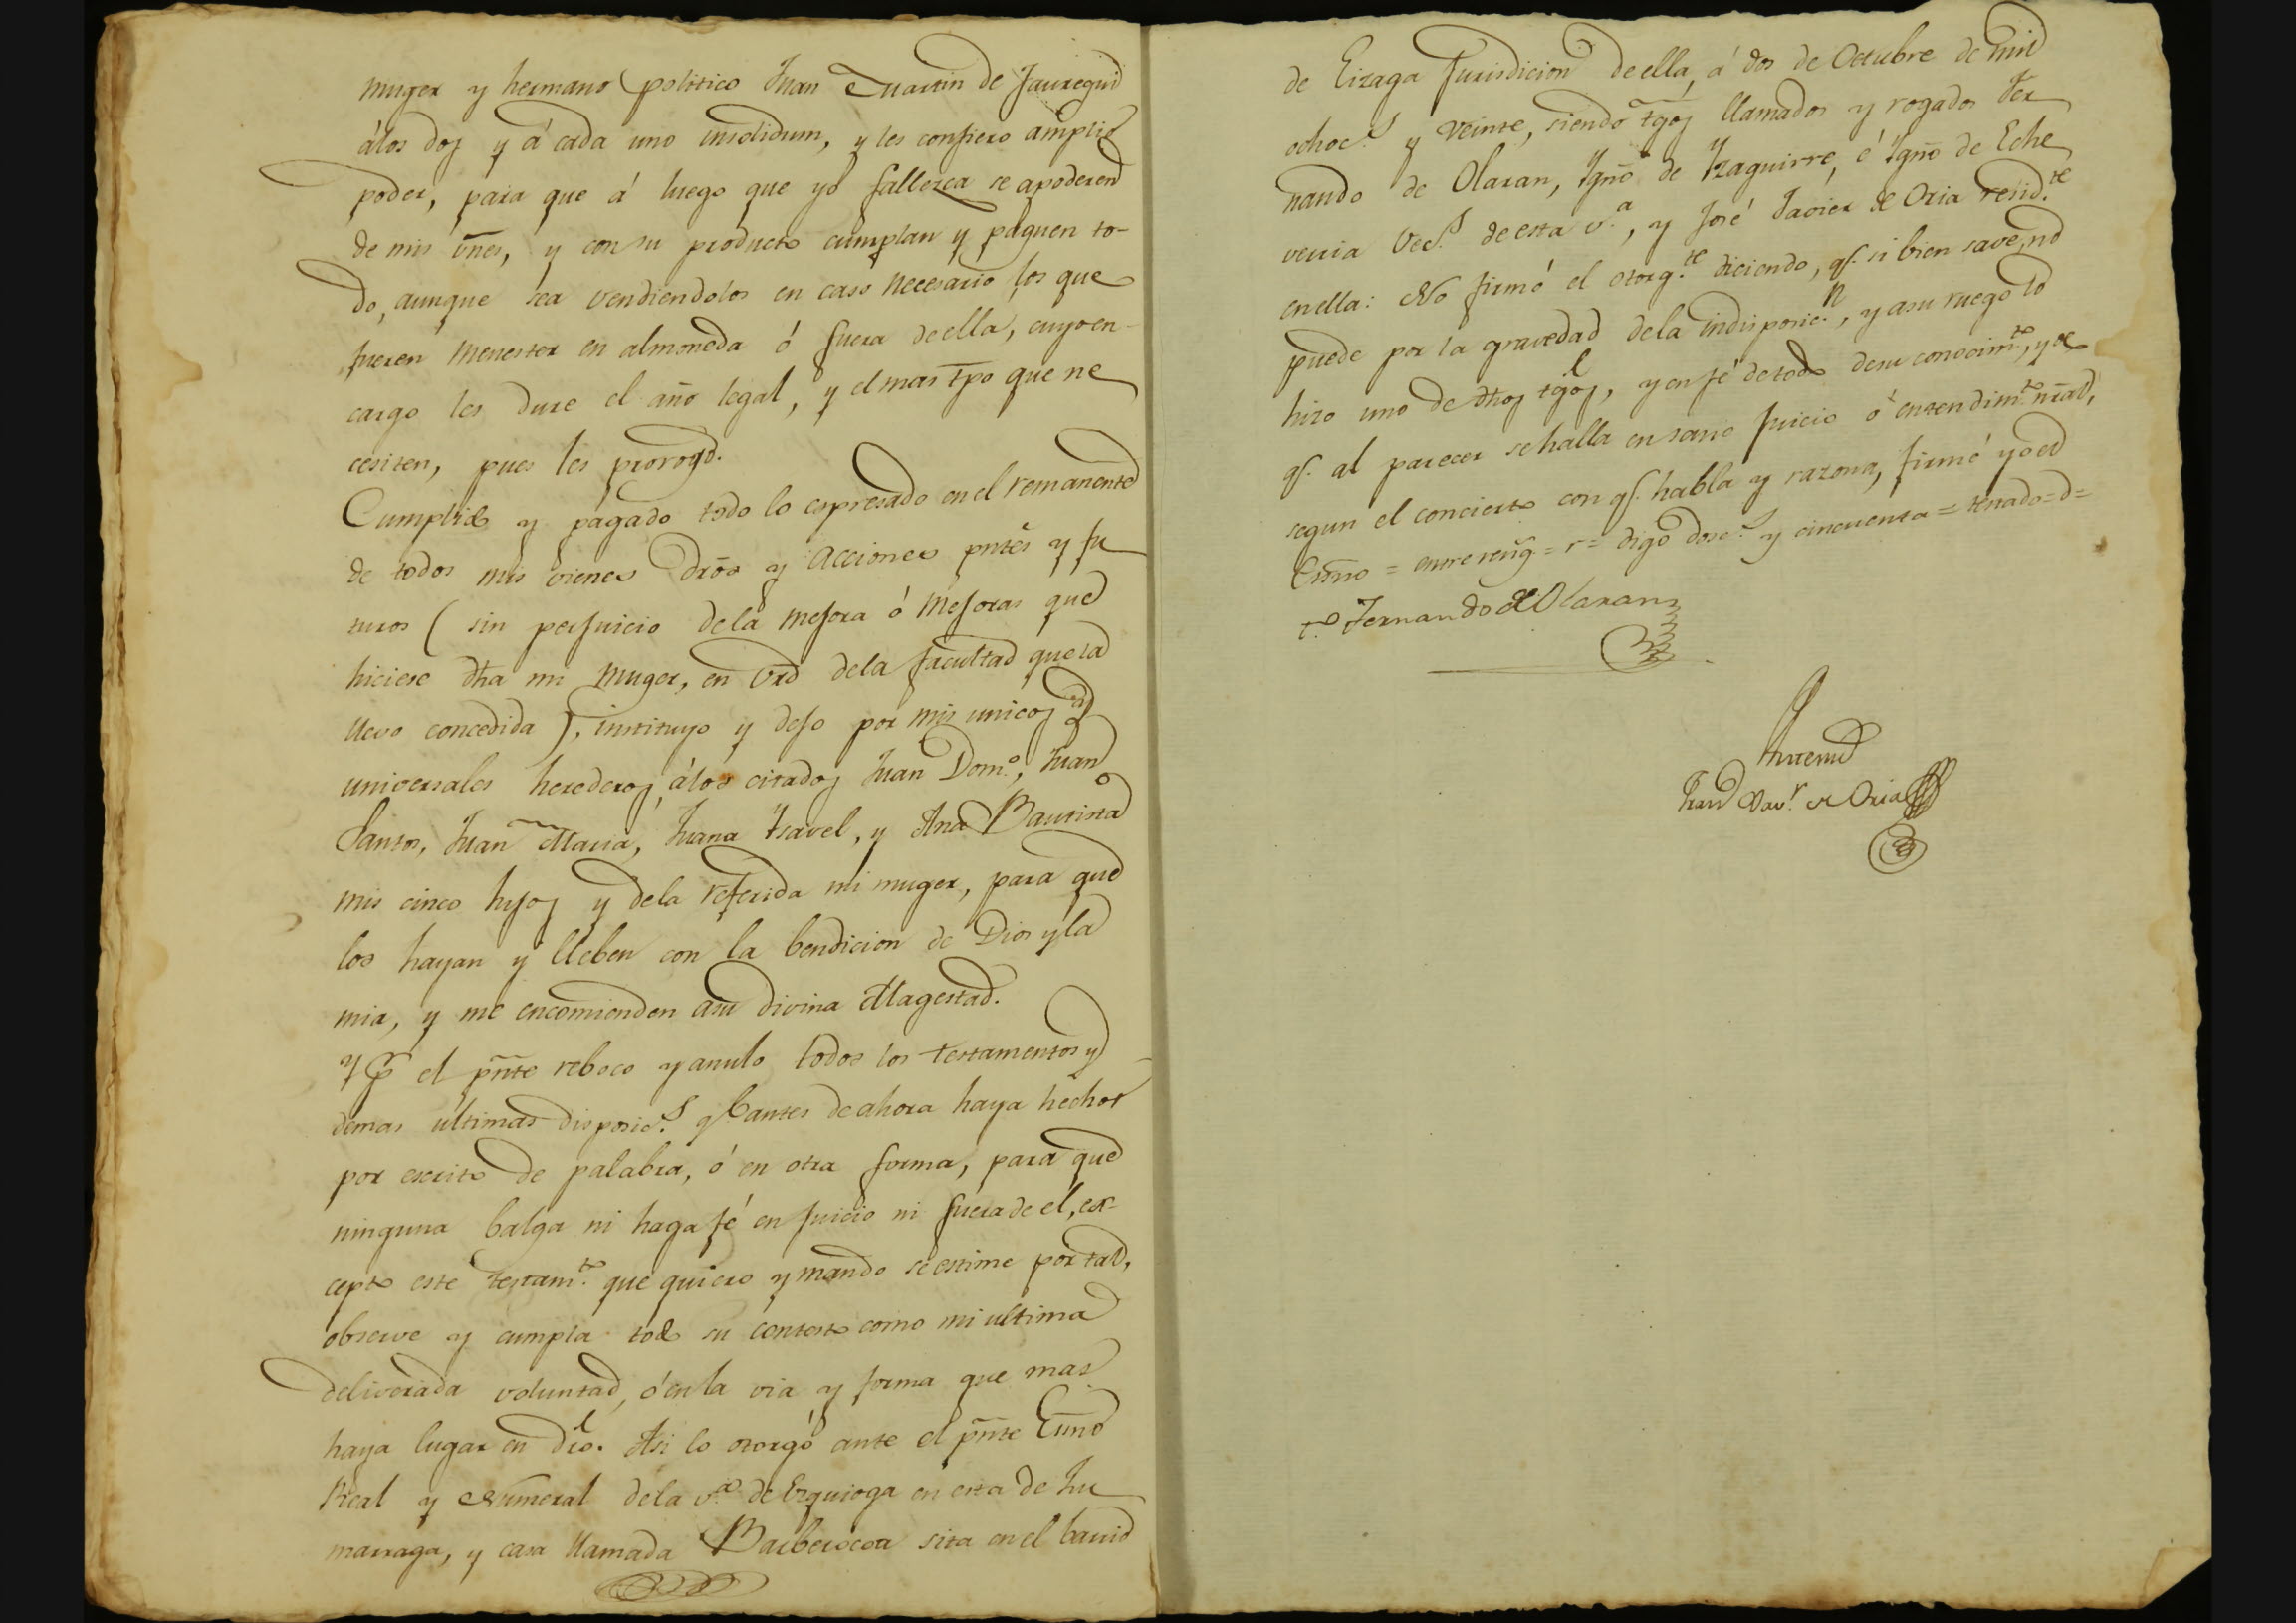 muger y hermano politico Juan Martin de Jauregui
álos dos y á cada uno insolidum, y les confiero amplio
poder, para que á luego que yo fallezca se apoderen
de mis vn̄es, y con su producto cumplan y paguen to-
do, aunque sea vendiendolos en caso necesario los que
fueren menester en almoneda ó fuera de ella, cuyo en-
cargo les dure el año legal, y el mas tp̄o que ne
cesiten, pues les prorogo.
Cumplido y pagado todo lo espresado en el remanente
de todos mis vienes dr̄os y acciones pntēs y fu
turos (sin perjuicio dela mejora ó mejoras que
hiciere dh̄a mi muger, en vrd̄ dela facultad que la
llevo concedida), instituyo y dejo por mis unicos y
universales herederos álos citados Juan Dom.º, Juan
Santos, Juan Maria, Juana Ysavel, y Ana Bautista
mis cinco hijos y dela referida mi muger, para que
los hayan y lleben con la bendicion de Dios y la
mia, y me encomienden asu divina Magestad.
Y p̄r el pn̄te reboco y anulo todos los testamentos y
demas ultimas disposic.s q.e antes de ahora haya hechos
por escrito de palabra, ó en otra forma, para que
ninguna balga ni haga fé en juicio ni fuera de el, ex-
cepto este testam.to que quiero y mando se estime por tal,
observe y cumpla todo su contesto como mi ultima
deliverada voluntad, ó en la via y forma que mas
haya lugar en dr̄o. Asi lo otorgó ante el pn̄te Esn̄o
Real y Numeral dela v.a de Ezquioga en esta de Zu
marraga, y casa llamada Barberocoa sita en el barrio
de Eizaga Jurisdicion de ella, á dos de Octubre de mil
ochoc.s y veinte, siendo tgōs llamados y rogados Fer
nando de Olaran, Ygn̄o de Yzaguirre, é Ygn̄o de Eche
verria vec.s de esta v.a, y José Javier de Oria resid.te
en ella: No firmó el otorg.te diciendo, q.e si bien save, no
puede por la gravedad dela indisposic.n, y asu ruego lo
hizo uno de dh̄os tgōs, y en fé de todo de su conocim.to, y de
q.e al parecer se halla en sano juicio ó entendim.to nr̄al,
segun el concierto con q.e habla y razona, firmé yo el
Esn̄o = entrereng̃ = r = digo dosc.s y cincuenta = testado = d =
t.º Fernando de Olaran
Antemi
Juan Xav.r de Oria